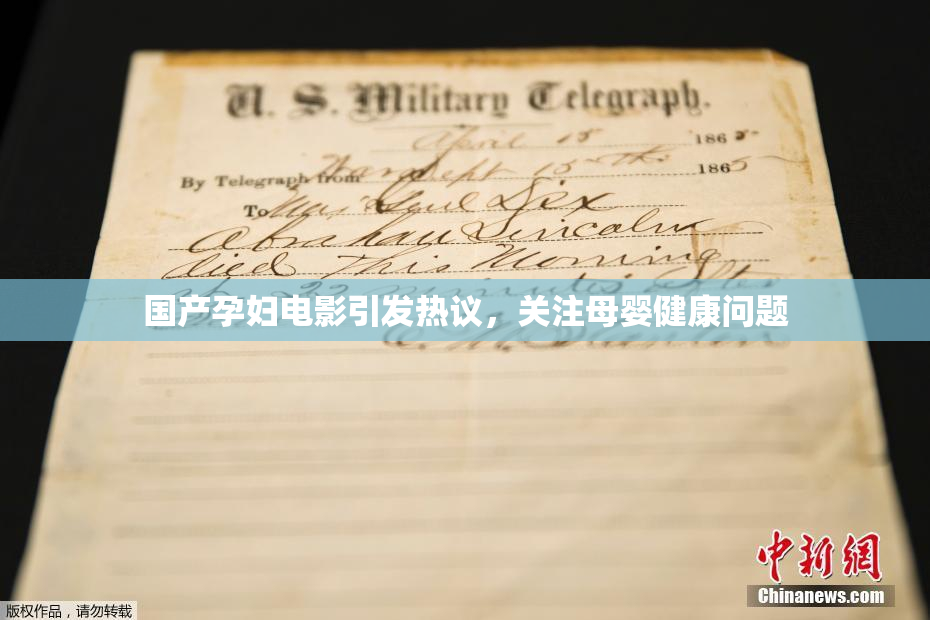 U. S. Military Telegraph.
April 15 1865
By Telegraph from War Dept 15th 1865
To Maj Genl Dix
Abraham Lincoln
died this Morning
22 minutes after
国产孕妇电影引发热议，关注母婴健康问题
E. M. Stanton
中新网
Chinanews.com
版权作品，请勿转载